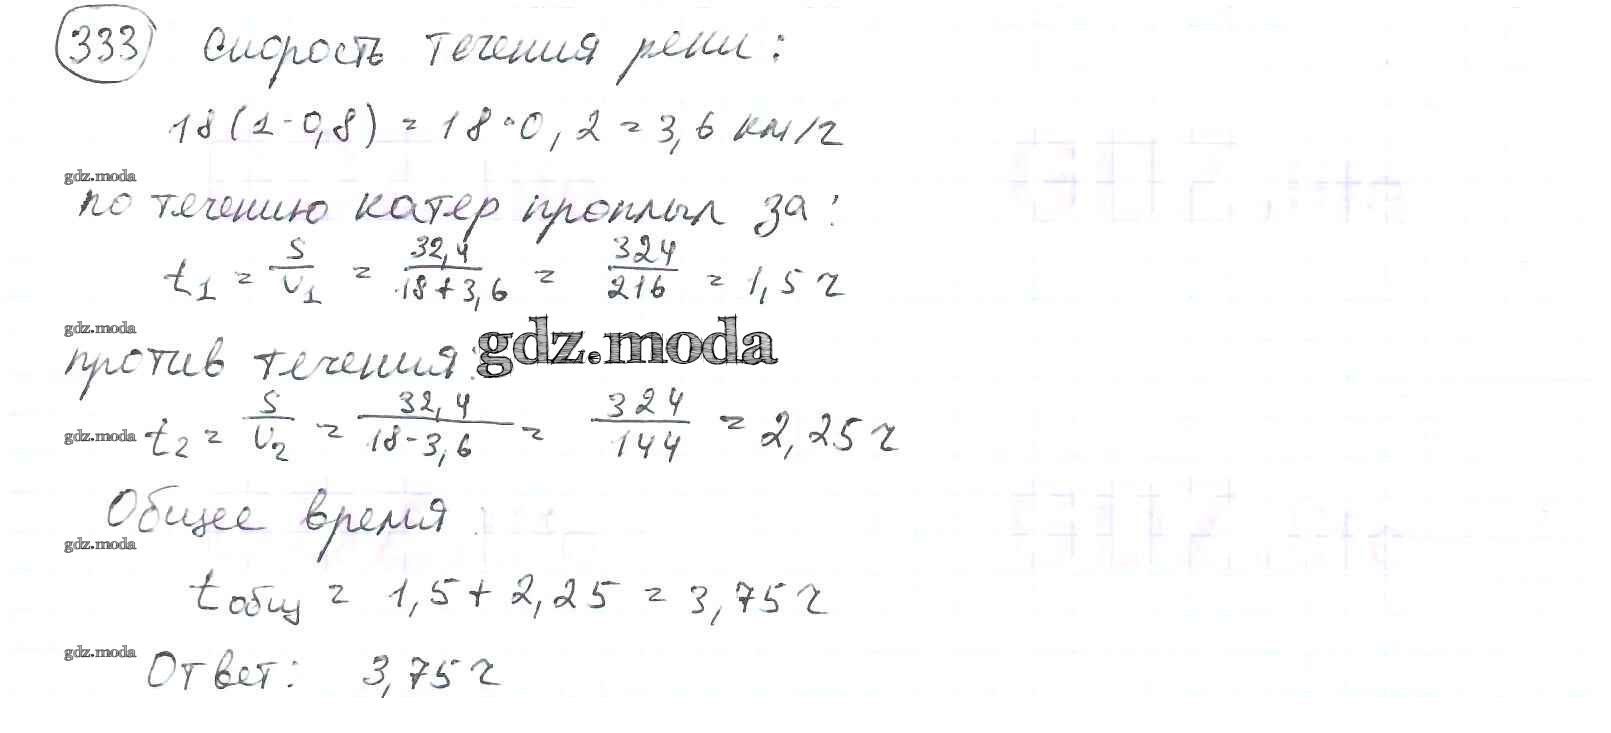 333 Скорость течения реки:
18(1-0,8) = 18·0,2 = 3,6 км/ч
gdz.moda
по течению катер проплыл за:
t₁ = S/v₁ = 32,4/18+3,6 = 324/216 = 1,5 ч
gdz.moda
против течения: gdz.moda
gdz.moda t₂ = S/v₂ = 32,4/18-3,6 = 324/144 = 2,25 ч
Общее время:
gdz.moda
tобщ = 1,5 + 2,25 = 3,75 ч
gdz.moda Ответ: 3,75 ч